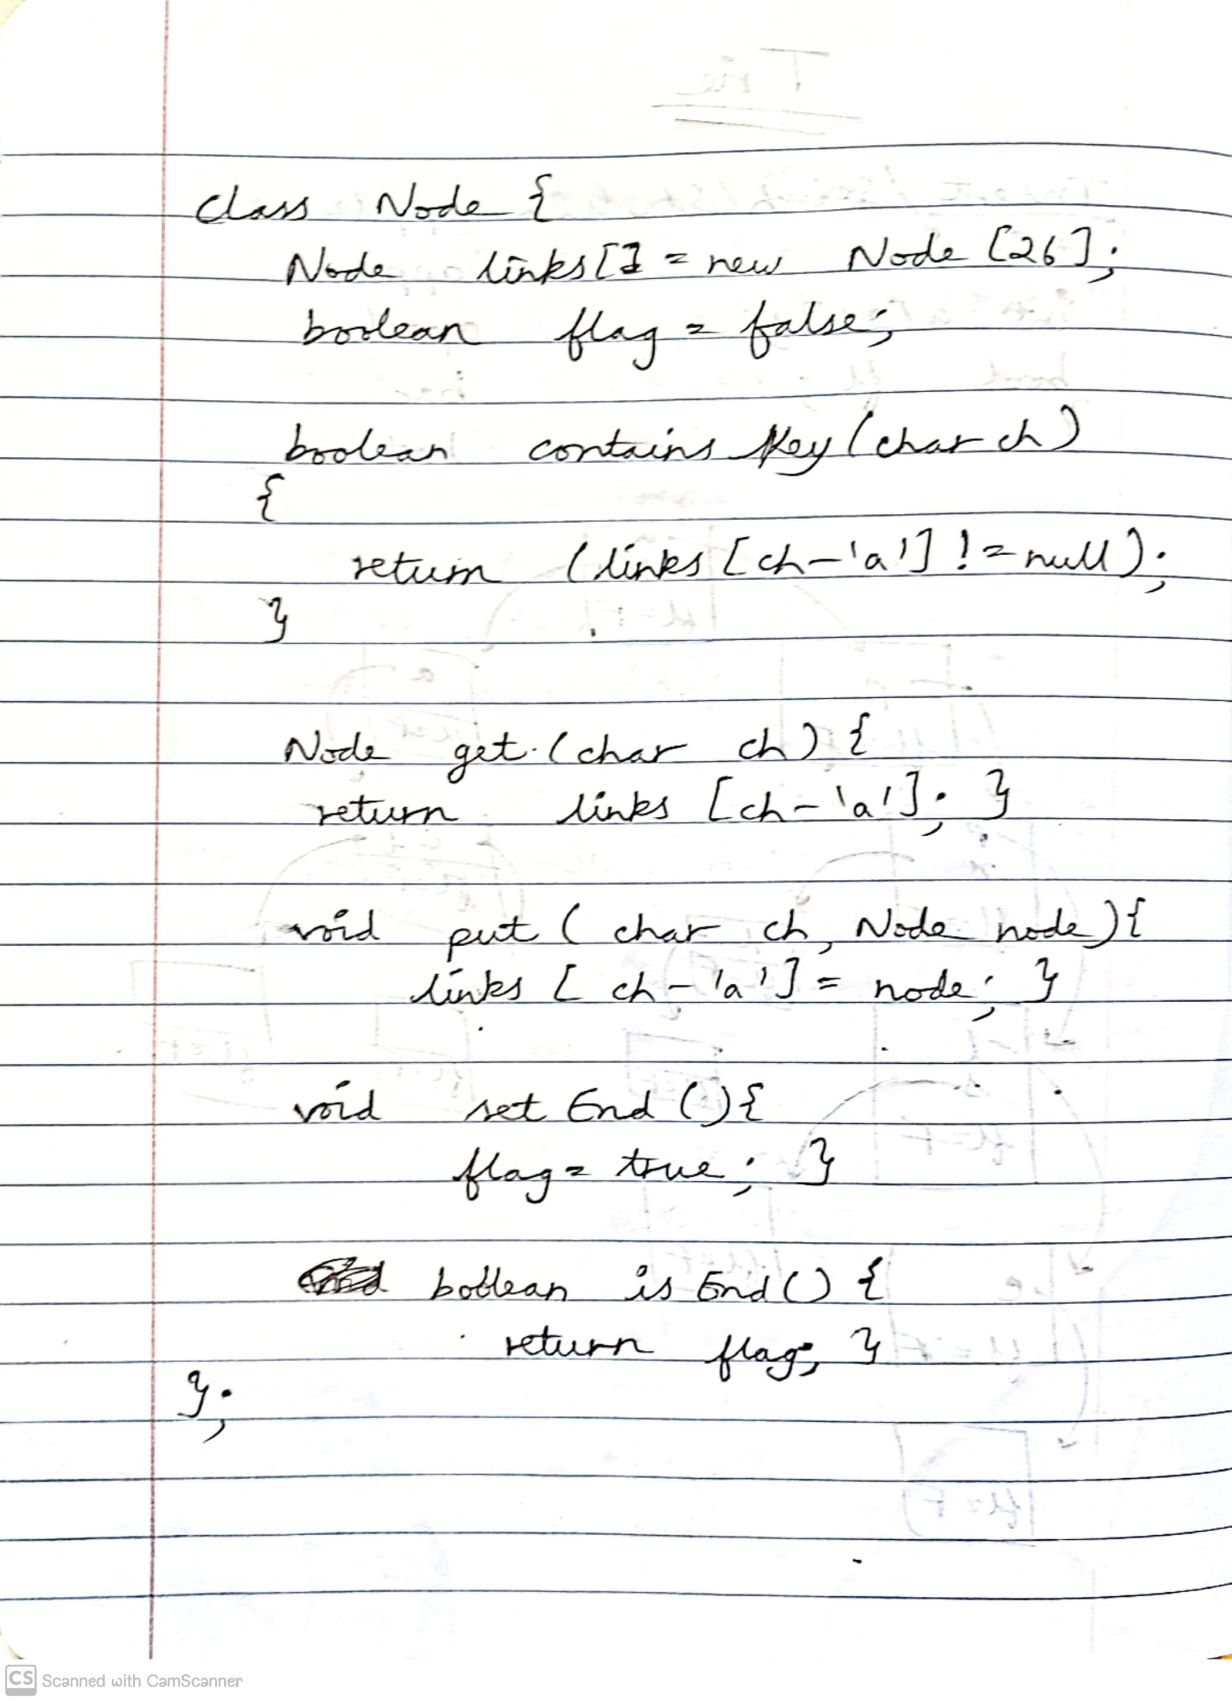 Trie
class Node {
Node links[] = new Node [26];
boolean flag = false;
boolean contains Key (char ch)
{
return (links [ch-'a'] != null);
}
Node get (char ch) {
return links [ch-'a']; }
void put ( char ch, Node node) {
links [ ch-'a'] = node; }
void set End () {
flag = true; }
boolean is End () {
return flag; }
};
CS Scanned with CamScanner